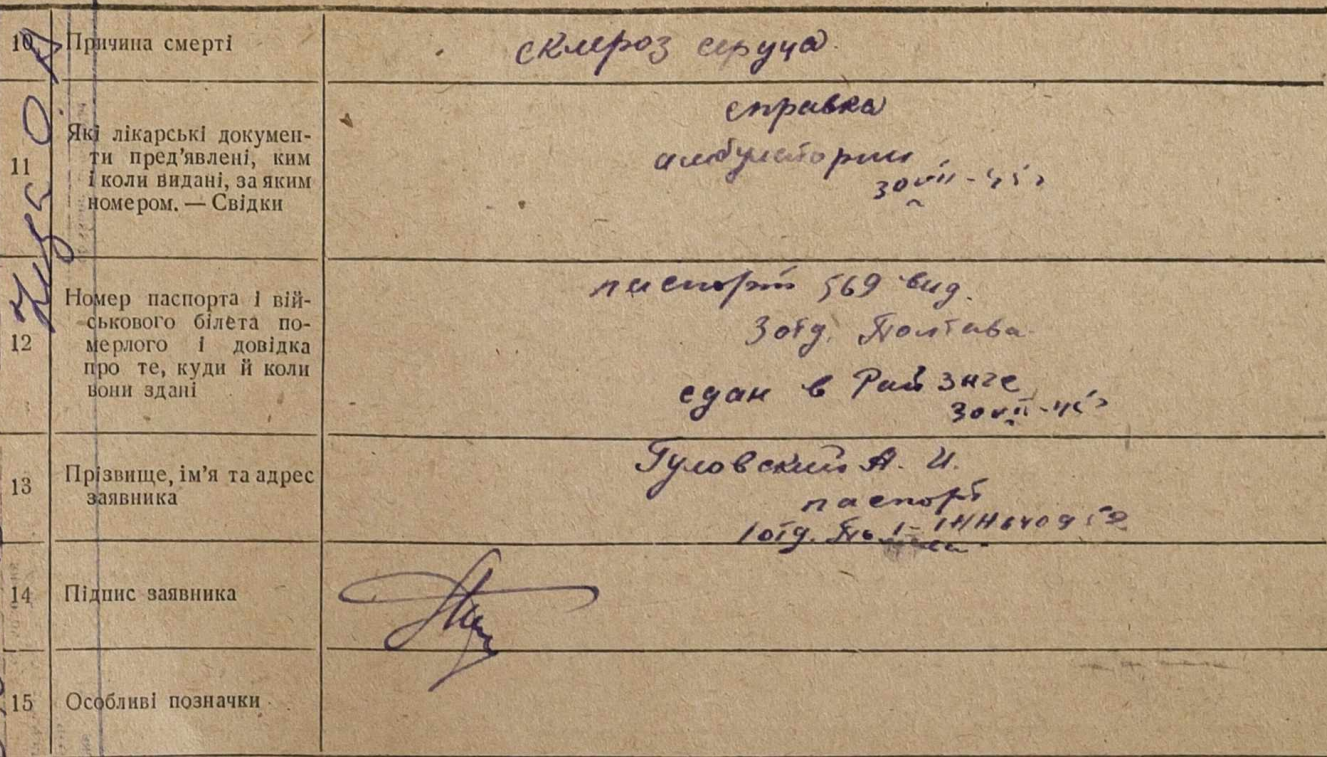 10 Причина смерті
склероз серуца
11 Які лікарські докумен-
ти пред'явлені, ким
і коли видані, за яким
номером. — Свідки
справка
амбулатории
30 VII - 45 г
12 Номер паспорта і вій-
ськового білета по-
мерлого і довідка
про те, куди й коли
вони здані
паспорт 569 выд.
3 отд. Полтава
сдан в Рай загс
30 VII - 45 г
13 Прізвище, ім'я та адрес
заявника
Гуловский А. И.
паспорт
1 отд.
14 Підпис заявника
15 Особливі позначки